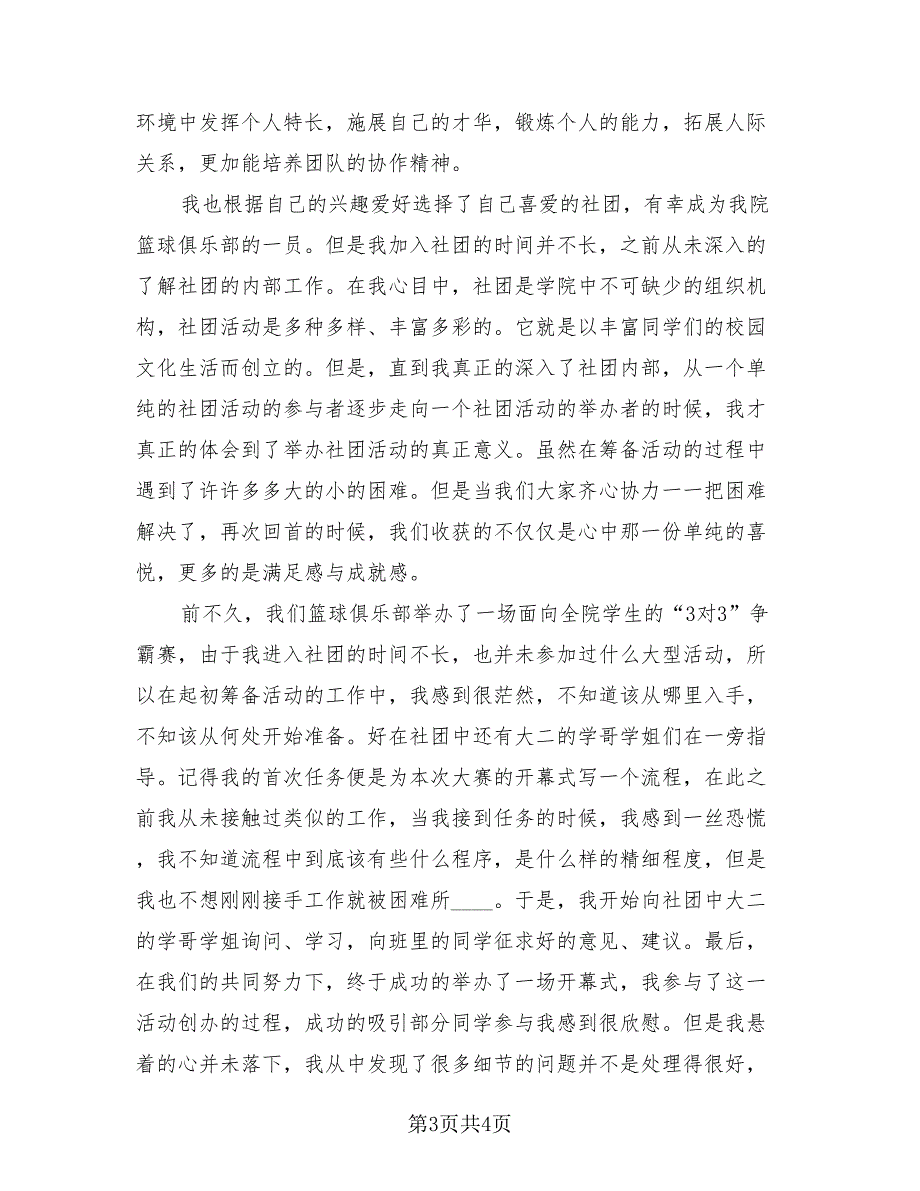 环境中发挥个人特长，施展自己的才华，锻炼个人的能力，拓展人际
关系，更加能培养团队的协作精神。
我也根据自己的兴趣爱好选择了自己喜爱的社团，有幸成为我院
篮球俱乐部的一员。但是我加入社团的时间并不长，之前从未深入的
了解社团的内部工作。在我心目中，社团是学院中不可缺少的组织机
构，社团活动是多种多样、丰富多彩的。它就是以丰富同学们的校园
文化生活而创立的。但是，直到我真正的深入了社团内部，从一个单
纯的社团活动的参与者逐步走向一个社团活动的举办者的时候，我才
真正的体会到了举办社团活动的真正意义。虽然在筹备活动的过程中
遇到了许许多多大的小的困难。但是当我们大家齐心协力一一把困难
解决了，再次回首的时候，我们收获的不仅仅是心中那一份单纯的喜
悦，更多的是满足感与成就感。
前不久，我们篮球俱乐部举办了一场面向全院学生的“3对3”争
霸赛，由于我进入社团的时间不长，也并未参加过什么大型活动，所
以在起初筹备活动的工作中，我感到很茫然，不知道该从哪里入手，
不知该从何处开始准备。好在社团中还有大二的学哥学姐们在一旁指
导。记得我的首次任务便是为本次大赛的开幕式写一个流程，在此之
前我从未接触过类似的工作，当我接到任务的时候，我感到一丝恐慌
，我不知道流程中到底该有些什么程序，是什么样的精细程度，但是
我也不想刚刚接手工作就被困难所____。于是，我开始向社团中大二
的学哥学姐询问、学习，向班里的同学征求好的意见、建议。最后，
在我们的共同努力下，终于成功的举办了一场开幕式，我参与了这一
活动创办的过程，成功的吸引部分同学参与我感到很欣慰。但是我悬
着的心并未落下，我从中发现了很多细节的问题并不是处理得很好，
第3页共4页